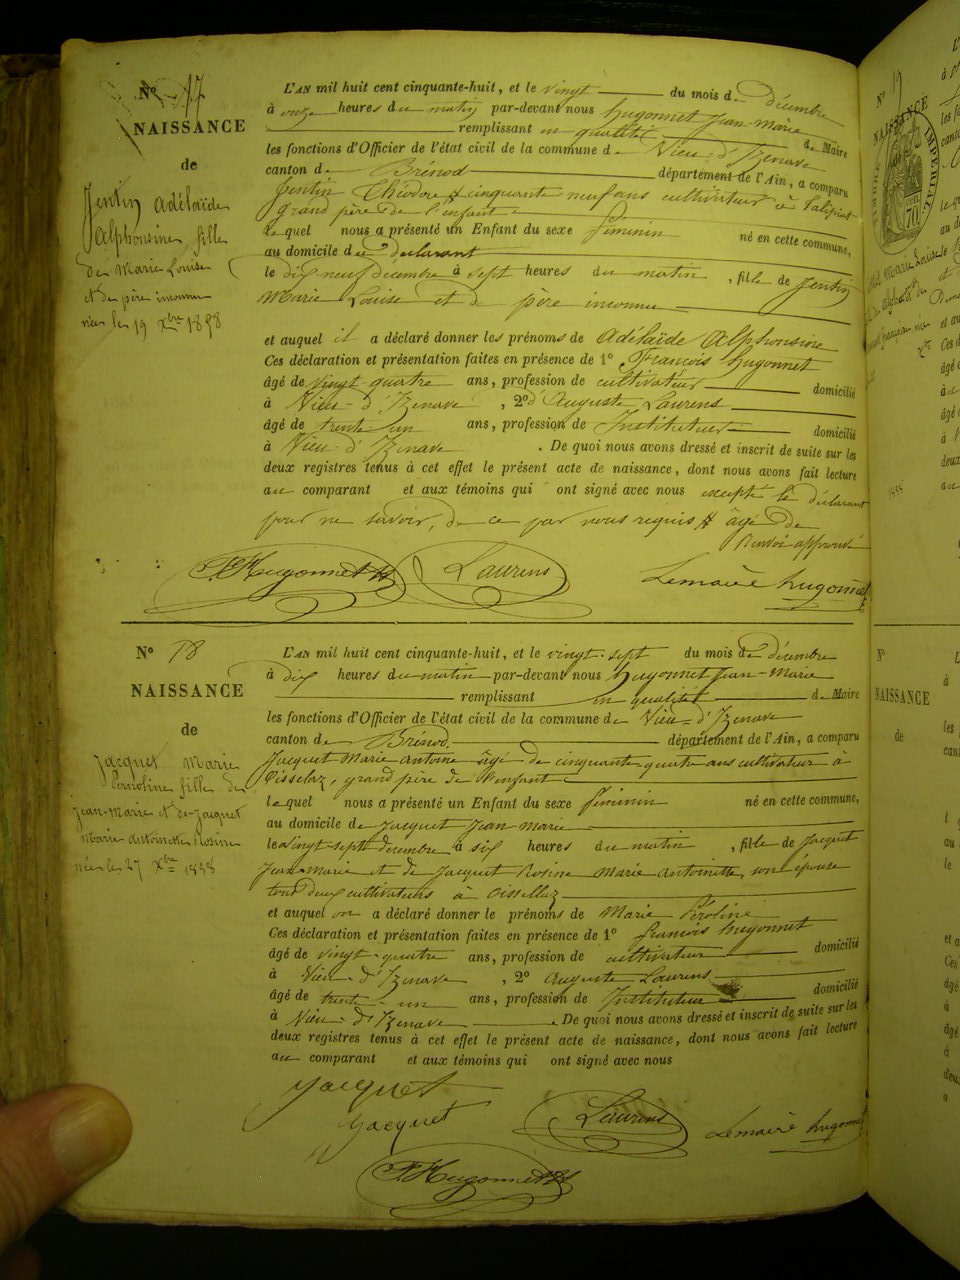 N° 17
NAISSANCE
de
Jentin Adélaïde
Alphonsine, fille
de Marie Louise
et de père inconnu
née le 19 Xbre 1858
L'AN mil huit cent cinquante-huit, et le vingt du mois de décembre
à onze heures du matin par-devant nous hugonnet Jean-Marie
remplissant en qualité de Maire
les fonctions d'Officier de l'état civil de la commune de Vieu-d'Izenave
canton de Brénod département de l'Ain, a comparu
Jentin Théodore # cinquante neuf ans cultivateur à
grand père de l'enfant
lequel nous a présenté un Enfant du sexe féminin né en cette commune,
au domicile du déclarant
le dix neuf décembre à sept heures du matin, fille de Jentin
Marie Louise et de père inconnu
et auquel il a déclaré donner les prénoms de Adélaïde Alphonsine
Ces déclaration et présentation faites en présence de 1° François hugonnet
âgé de vingt quatre ans, profession de cultivateur domicilié
à Vieu-d'Izenave, 2° d'Auguste Laurens
âgé de trente un ans, profession de Instituteur domicilié
à Vieu d'Izenave. De quoi nous avons dressé et inscrit de suite sur les
deux registres tenus à cet effet le présent acte de naissance, dont nous avons fait lecture
au comparant et aux témoins qui ont signé avec nous excepté le déclarant
pour ne savoir, de ce par nous requis # âgé de
Renvoi approuvé
F. Hugonnet Laurens Lemaire hugonnet
N° 18
NAISSANCE
de
Jacquet Marie
Péroline fille de
Jean-Marie et de Jacquet
Marie antoinette Rosine
née le 27 Xbre 1858
L'AN mil huit cent cinquante-huit, et le vingt-sept du mois de décembre
à dix heures du matin par-devant nous hugonnet Jean-Marie
remplissant en qualité de Maire
les fonctions d'Officier de l'état civil de la commune de Vieu-d'Izenave
canton de Brénod département de l'Ain, a comparu
Jacquet Marie Antoine âgé de cinquante-quatre ans cultivateur à
Oisselaz, grand père de l'enfant
lequel nous a présenté un Enfant du sexe féminin né en cette commune,
au domicile de Jacquet Jean-Marie
le vingt-sept décembre à six heures du matin, fille de Jacquet
Jean-Marie et de Jacquet Rosine Marie antoinette, son épouse
tous deux cultivateurs à Oissellaz
et auquel on a déclaré donner le prénoms de Marie Péroline
Ces déclaration et présentation faites en présence de 1° françois hugonnet
âgé de vingt-quatre ans, profession de cultivateur domicilié
à Vieu-d'Izenave, 2° auguste Laurens
âgé de trente-un ans, profession de Instituteur domicilié
à Vieu-d'Izenave. De quoi nous avons dressé et inscrit de suite sur les
deux registres tenus à cet effet le présent acte de naissance, dont nous avons fait lecture
au comparant et aux témoins qui ont signé avec nous
Jacquet
Jacquet Laurens Lemaire hugonnet
F. Hugonnet
N° 19
NAISSANCE
TIMBRE IMPERIAL
70
N°
NAISSANCE
de